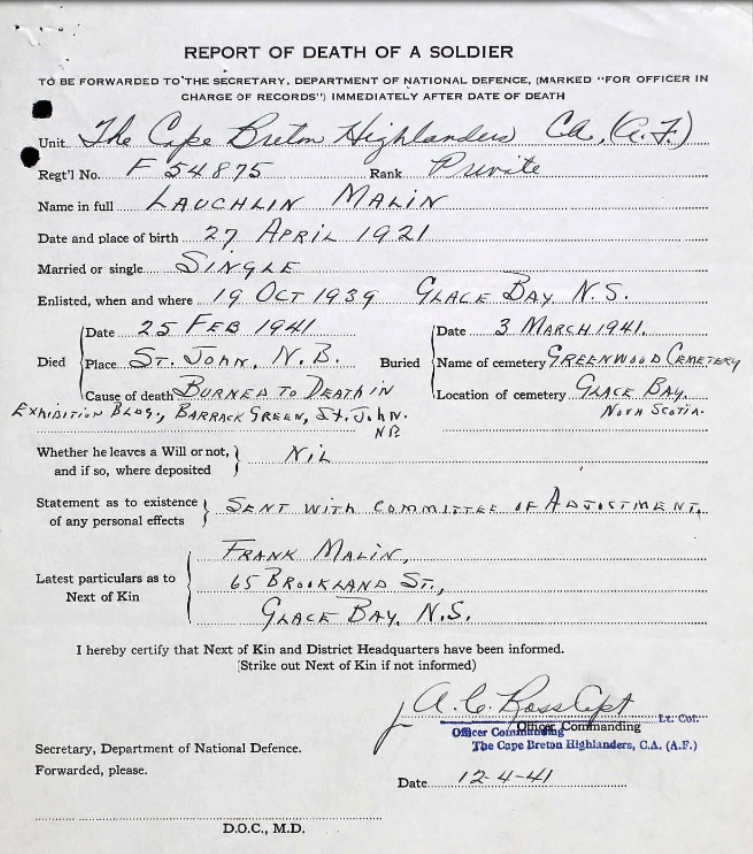 REPORT OF DEATH OF A SOLDIER
TO BE FORWARDED TO THE SECRETARY, DEPARTMENT OF NATIONAL DEFENCE, (MARKED "FOR OFFICER IN
CHARGE OF RECORDS") IMMEDIATELY AFTER DATE OF DEATH
Unit The Cape Breton Highlanders CA, (A.F.)
Regt'l No. F 54875 Rank Private
Name in full LAUCHLIN MALIN
Date and place of birth 27 APRIL 1921
Married or single SINGLE
Enlisted, when and where 19 OCT 1939 GLACE BAY N.S.
Date 25 FEB 1941 Date 3 MARCH 1941.
Died Place ST. JOHN, N.B. Buried Name of cemetery GREENWOOD CEMETERY
Cause of death BURNED TO DEATH IN Location of cemetery GLACE BAY.
EXHIBITION BLDG., BARRACK GREEN, ST. JOHN. NOVA SCOTIA.
NB
Whether he leaves a Will or not,
and if so, where deposited NIL
Statement as to existence
of any personal effects SENT WITH COMMITTEE OF ADJUSTMENT.
FRANK MALIN,
Latest particulars as to 65 BROOKLAND ST.,
Next of Kin GLACE BAY, N.S.
I hereby certify that Next of Kin and District Headquarters have been informed.
(Strike out Next of Kin if not informed)
A. C. Ross Capt
Lt. Col.
Officer Commanding
Officer Commanding
The Cape Breton Highlanders, C.A. (A.F.)
Secretary, Department of National Defence.
Forwarded, please.
Date 12-4-41
D.O.C., M.D.